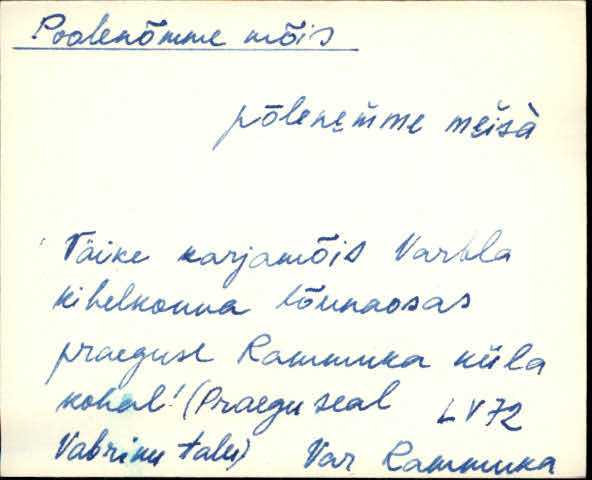 Poolenõmme mõis
põlene̮mme me̮i̮sà
Väike karjamõis Varbla
kihelkonna lõunaosas
praeguse Rammuka küla
kohal! (Praegu seal LV72
Vabriku talu) Var Rammuka